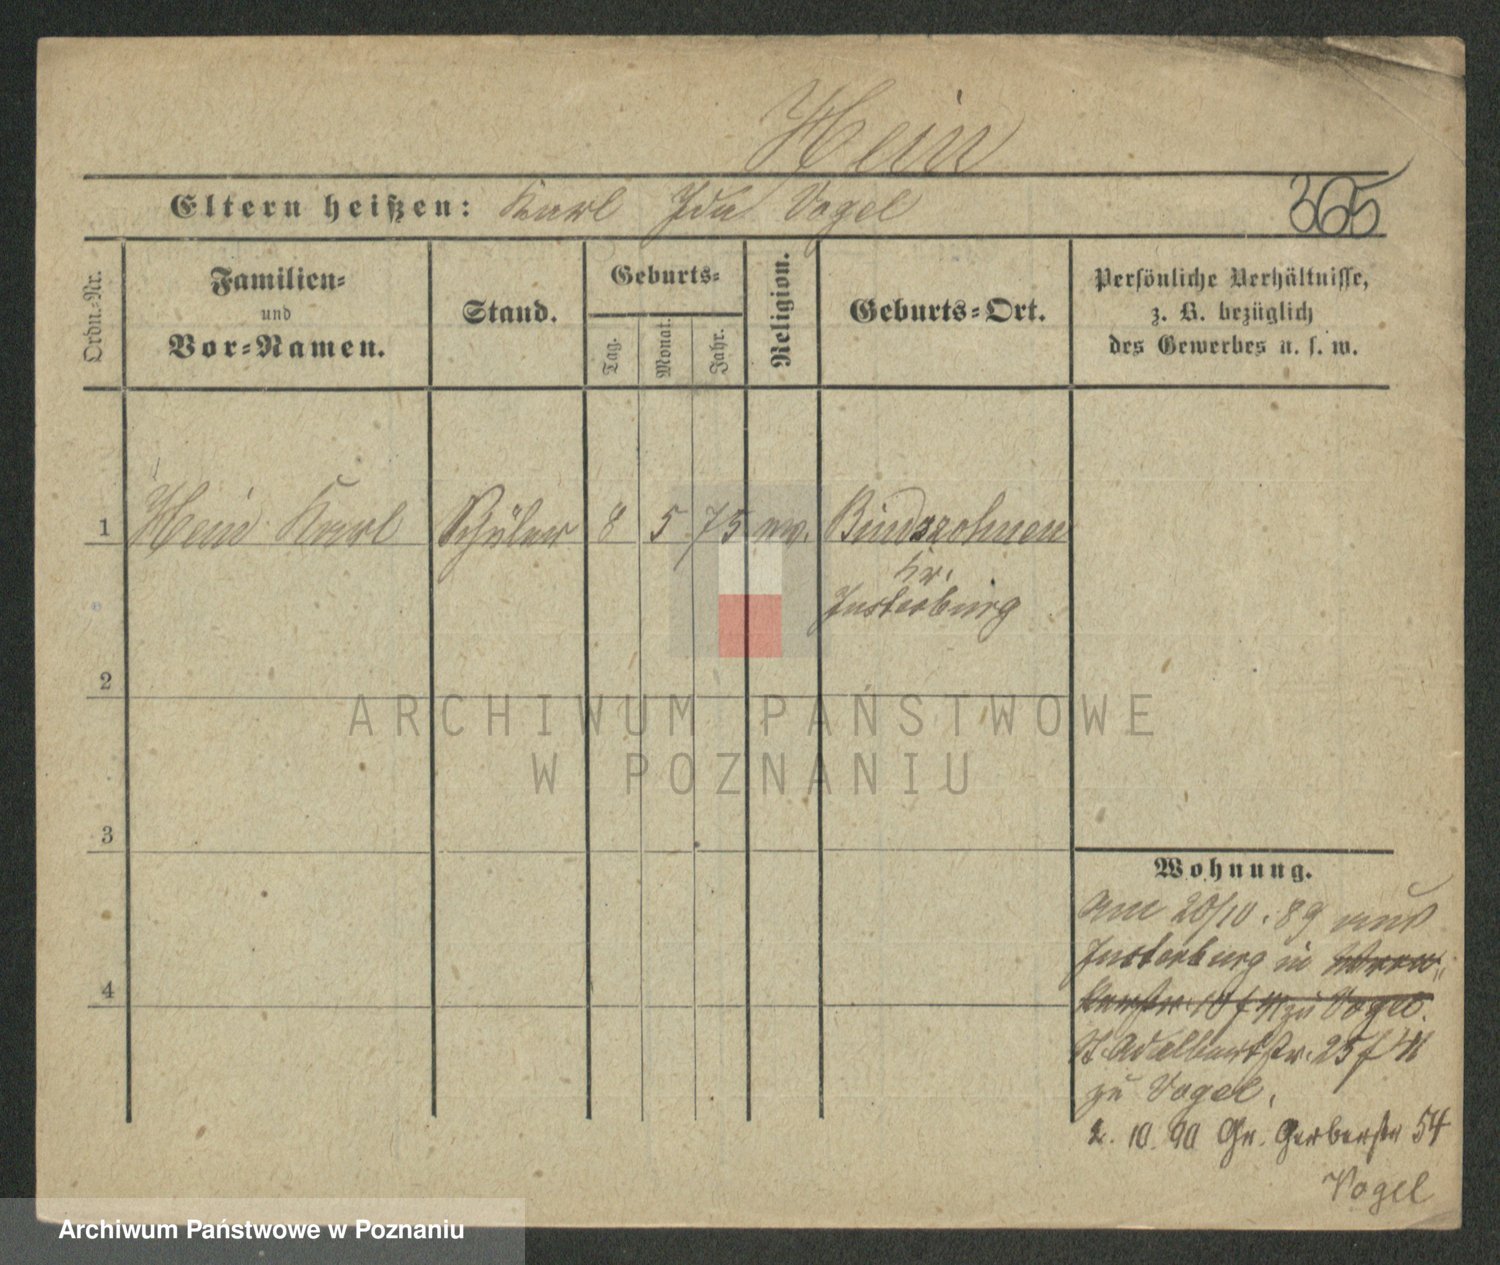 Hein
Eltern heißen: Karl Ida Vogel
365
Ordn.-Nr.
Familien-
und
Vor-Namen.
Stand.
Geburts-
Tag.
Monat.
Jahr.
Religion.
Geburts-Ort.
Persönliche Verhältnisse,
z. B. bezüglich
des Gewerbes u. s. w.
1 Hein Karl Schüler 8 5 75 ev. Bindszohnen
Kr.
Insterburg
2
3
4
ARCHIWUM PAŃSTWOWE
W POZNANIU
Wohnung.
Am 20/10. 89 aus
Insterburg in
10 f II zu Vogel.
St. Adalbertstr. 25 f II
zu Vogel.
2. 10. 90 Gr. Gerberstr 54
Vogel
Archiwum Państwowe w Poznaniu